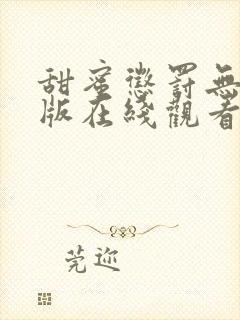 甜蜜懲罰無
版在綫觀看
莞迩